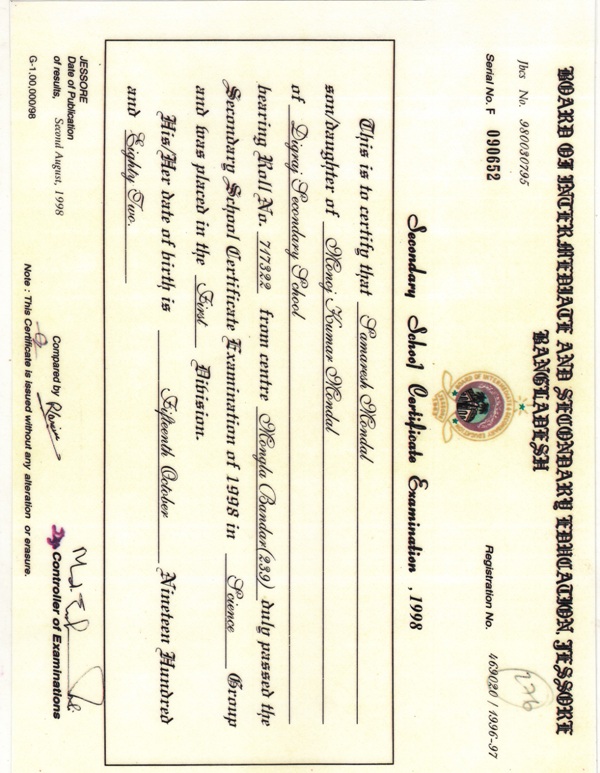 BOARD OF INTERMEDIATE AND SECONDARY EDUCATION, JESSORE
BANGLADESH
Jbcs No. 980030795
Serial No. F 090652
276
Registration No. 469020 / 1996-97
Secondary School Certificate Examination, 1998
This is to certify that Samaresh Mondal
son/daughter of Monoj Kumar Mondal
of Digraj Secondary School
bearing Roll No. 717322 from centre Mongla Bandar (239) duly passed the
Secondary School Certificate Examination of 1998 in Science Group
and was placed in the First Division.
His/Her date of birth is Fifteenth October Nineteen Hundred
and Eighty Two.
JESSORE
Date of Publication
of results, Second August, 1998
G-1,00,000/98
Compared by
Controller of Examinations
Note : This Certificate is issued without any alteration or erasure.